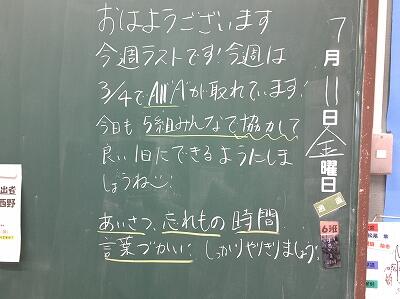 おはようございます
今週ラストです！今週は
3/4でAll"A"が取れています！
今日も5組みんなで協力して
良い1日にできるようにしま
しょうね
あいさつ、忘れもの 時間
言葉づかい しっかりやりきりましょう！
7月11日金曜日
6班
出者
西野